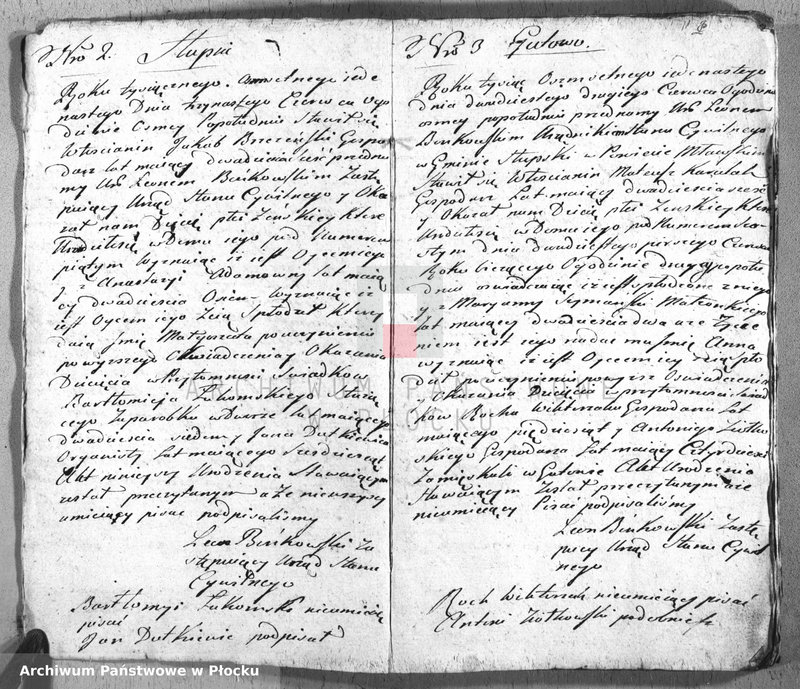 Nro 2. Słupia
Roku tysięcznego osmsetnego iede
nastego Dnia trzynastego Czerwca ogo
dzinie Osmey Popołudniu Stawił się
Włoscianin Jakob Brzeziński Gospo
darz lat maiący dwadziescia sześć przedna
my Leonem Bińkowskim Zastę
puiący Urząd Stanu Cywilnego y Oka
zał nam Dziecię płci Zenskiey które
Urodziło się w Domu iego pod Numerem
piątym wyznaiąc iż iest Oycem iego
y z Anastazyi Adamowny lat maią
cy dwadziescia Osiem wyznaiąc iż
iest Oycem iego Zeią Spłodził którey
daią Imię Małgorzata po uczynieniu
powyższego Oświadczenia y Okazaniu
Dziecięcia w Przytomnosci Swiadków
Bartłomieja Żukowskiego Służą
cego Zaparobka w dworze lat maiącego
dwadziescia siedm y Jana Dutkiewicza
Organisty lat maiącego Szesdziesiąt
Akt ninieyszy Urodzenia Stawaiącym
został przeczytanym a Ze nieuszący
umieiący pisac podpisalismy
Leon Binkowski Za
stępuiący Urząd Stanu
Cywilnego
Bartłomyi Zukowski nieumieią
pisać
Jan Dutkiewic podpisał
Nro 3 Gutowo.
Roku tysiąc Osmsetnego iedenastego
dnia dwudziestego drugiego Czerwca Ogodzinie
osmey popołudniu przednamy Leonem
Binkowskim Urzędnikiem Stanu Cywilnego
w Gminie Słupski w Powiecie Mławskim
Stawił się Włoscianin Mateusz
Gospodarz Lat maiący dwadziescia sześć
y Okazał nam Dziecię płci Zenskiey które
Urodziło się w Domu iego pod Numerem Szo
stym dnia dwudziestego pierwszego Czerwca
Roku bieżącego Ogodzinie drugiey popołu
dniu oswiadczaiąc iż iest spłodzone z niego
y z Maryanny Szymanski Małżonki iego
lat maiący dwadziescia dwa a że Życze
niem iest iego nadać mu Imie Anna
wyznaiąc iż iest Oycem iey y Zeią spło
dził po uczynieniu powyższ Oswiadczenia
y Okazania Dziecięcia w Przytomnosci Swiad
ków Rocha Wiktorzaka Gospodarza lat
maiącego piędziesiąt y Antoniego Ziółko
wskiego Gospodarza lat maiący Czterdziesci
Zamieszkali w Gutowie Akt Urodzenia
Stawaiącym Został przeczytanym a że
nieumieiący Pisać podpisalismy
Leon Binkowski Zastę
puiący Urząd Stanu Cywil
nego
Roch Wiktorzak nieumieiący pisać
Antoni Ziółkowski podobnież
ARCHIWUM PAŃSTWOWE
W PŁOCKU
Archiwum Państwowe w Płocku